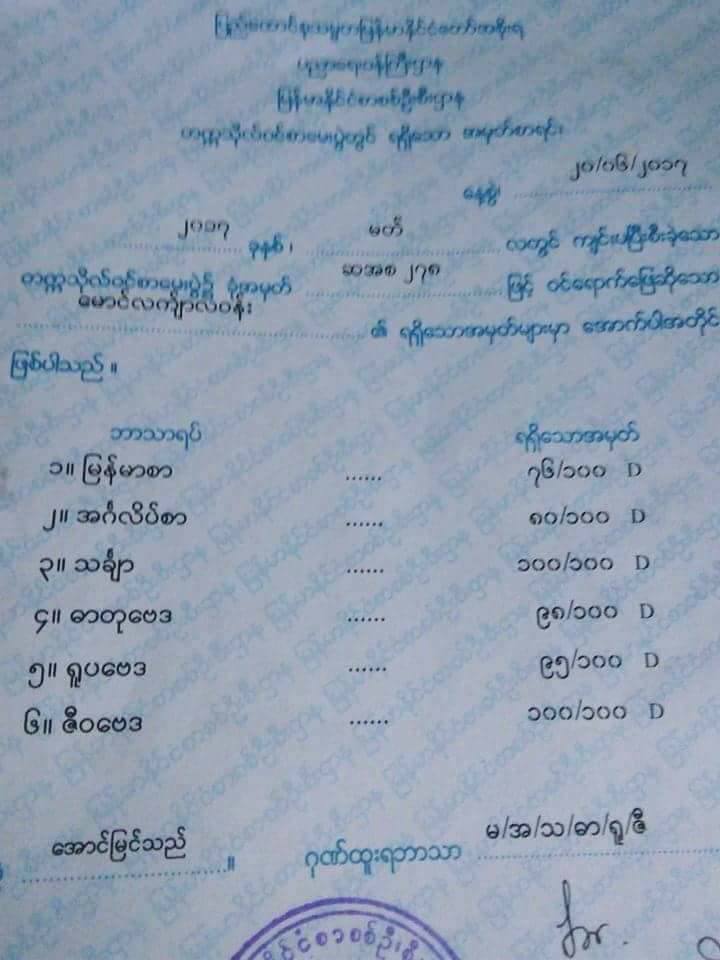 ပြည်ထောင်စုသမ္မတမြန်မာနိုင်ငံတော်အစိုးရ
ပညာရေးဝန်ကြီးဌာန
မြန်မာနိုင်ငံစာစစ်ဦးစီးဌာန
တက္ကသိုလ်ဝင်စာမေးပွဲတွင် ရရှိသော အမှတ်စာရင်း
နေ့စွဲ၊ ၂၀/၀၆/၂၀၁၇
၂၀၁၇ ခုနှစ်၊ မတ် လတွင် ကျင်းပပြီးစီးခဲ့သော
တက္ကသိုလ်ဝင်စာမေးပွဲ၌ ခုံအမှတ် ဆအစ ၂၇၈ ဖြင့် ဝင်ရောက်ဖြေဆိုသော
မောင်လကျ်ာလဝန်း ၏ ရရှိသောအမှတ်များမှာ အောက်ပါအတိုင်း
ဖြစ်ပါသည်။
ဘာသာရပ် ရရှိသောအမှတ်
၁။ မြန်မာစာ ...... ၇၆/၁၀၀ D
၂။ အင်္ဂလိပ်စာ ...... ၈၀/၁၀၀ D
၃။ သင်္ချာ ...... ၁၀၀/၁၀၀ D
၄။ ဓာတုဗေဒ ...... ၉၈/၁၀၀ D
၅။ ရူပဗေဒ ...... ၉၅/၁၀၀ D
၆။ ဇီဝဗေဒ ...... ၁၀၀/၁၀၀ D
အောင်မြင်သည်။ ဂုဏ်ထူးရဘာသာ မ/အ/သ/ဓာ/ရူ/ဇီ